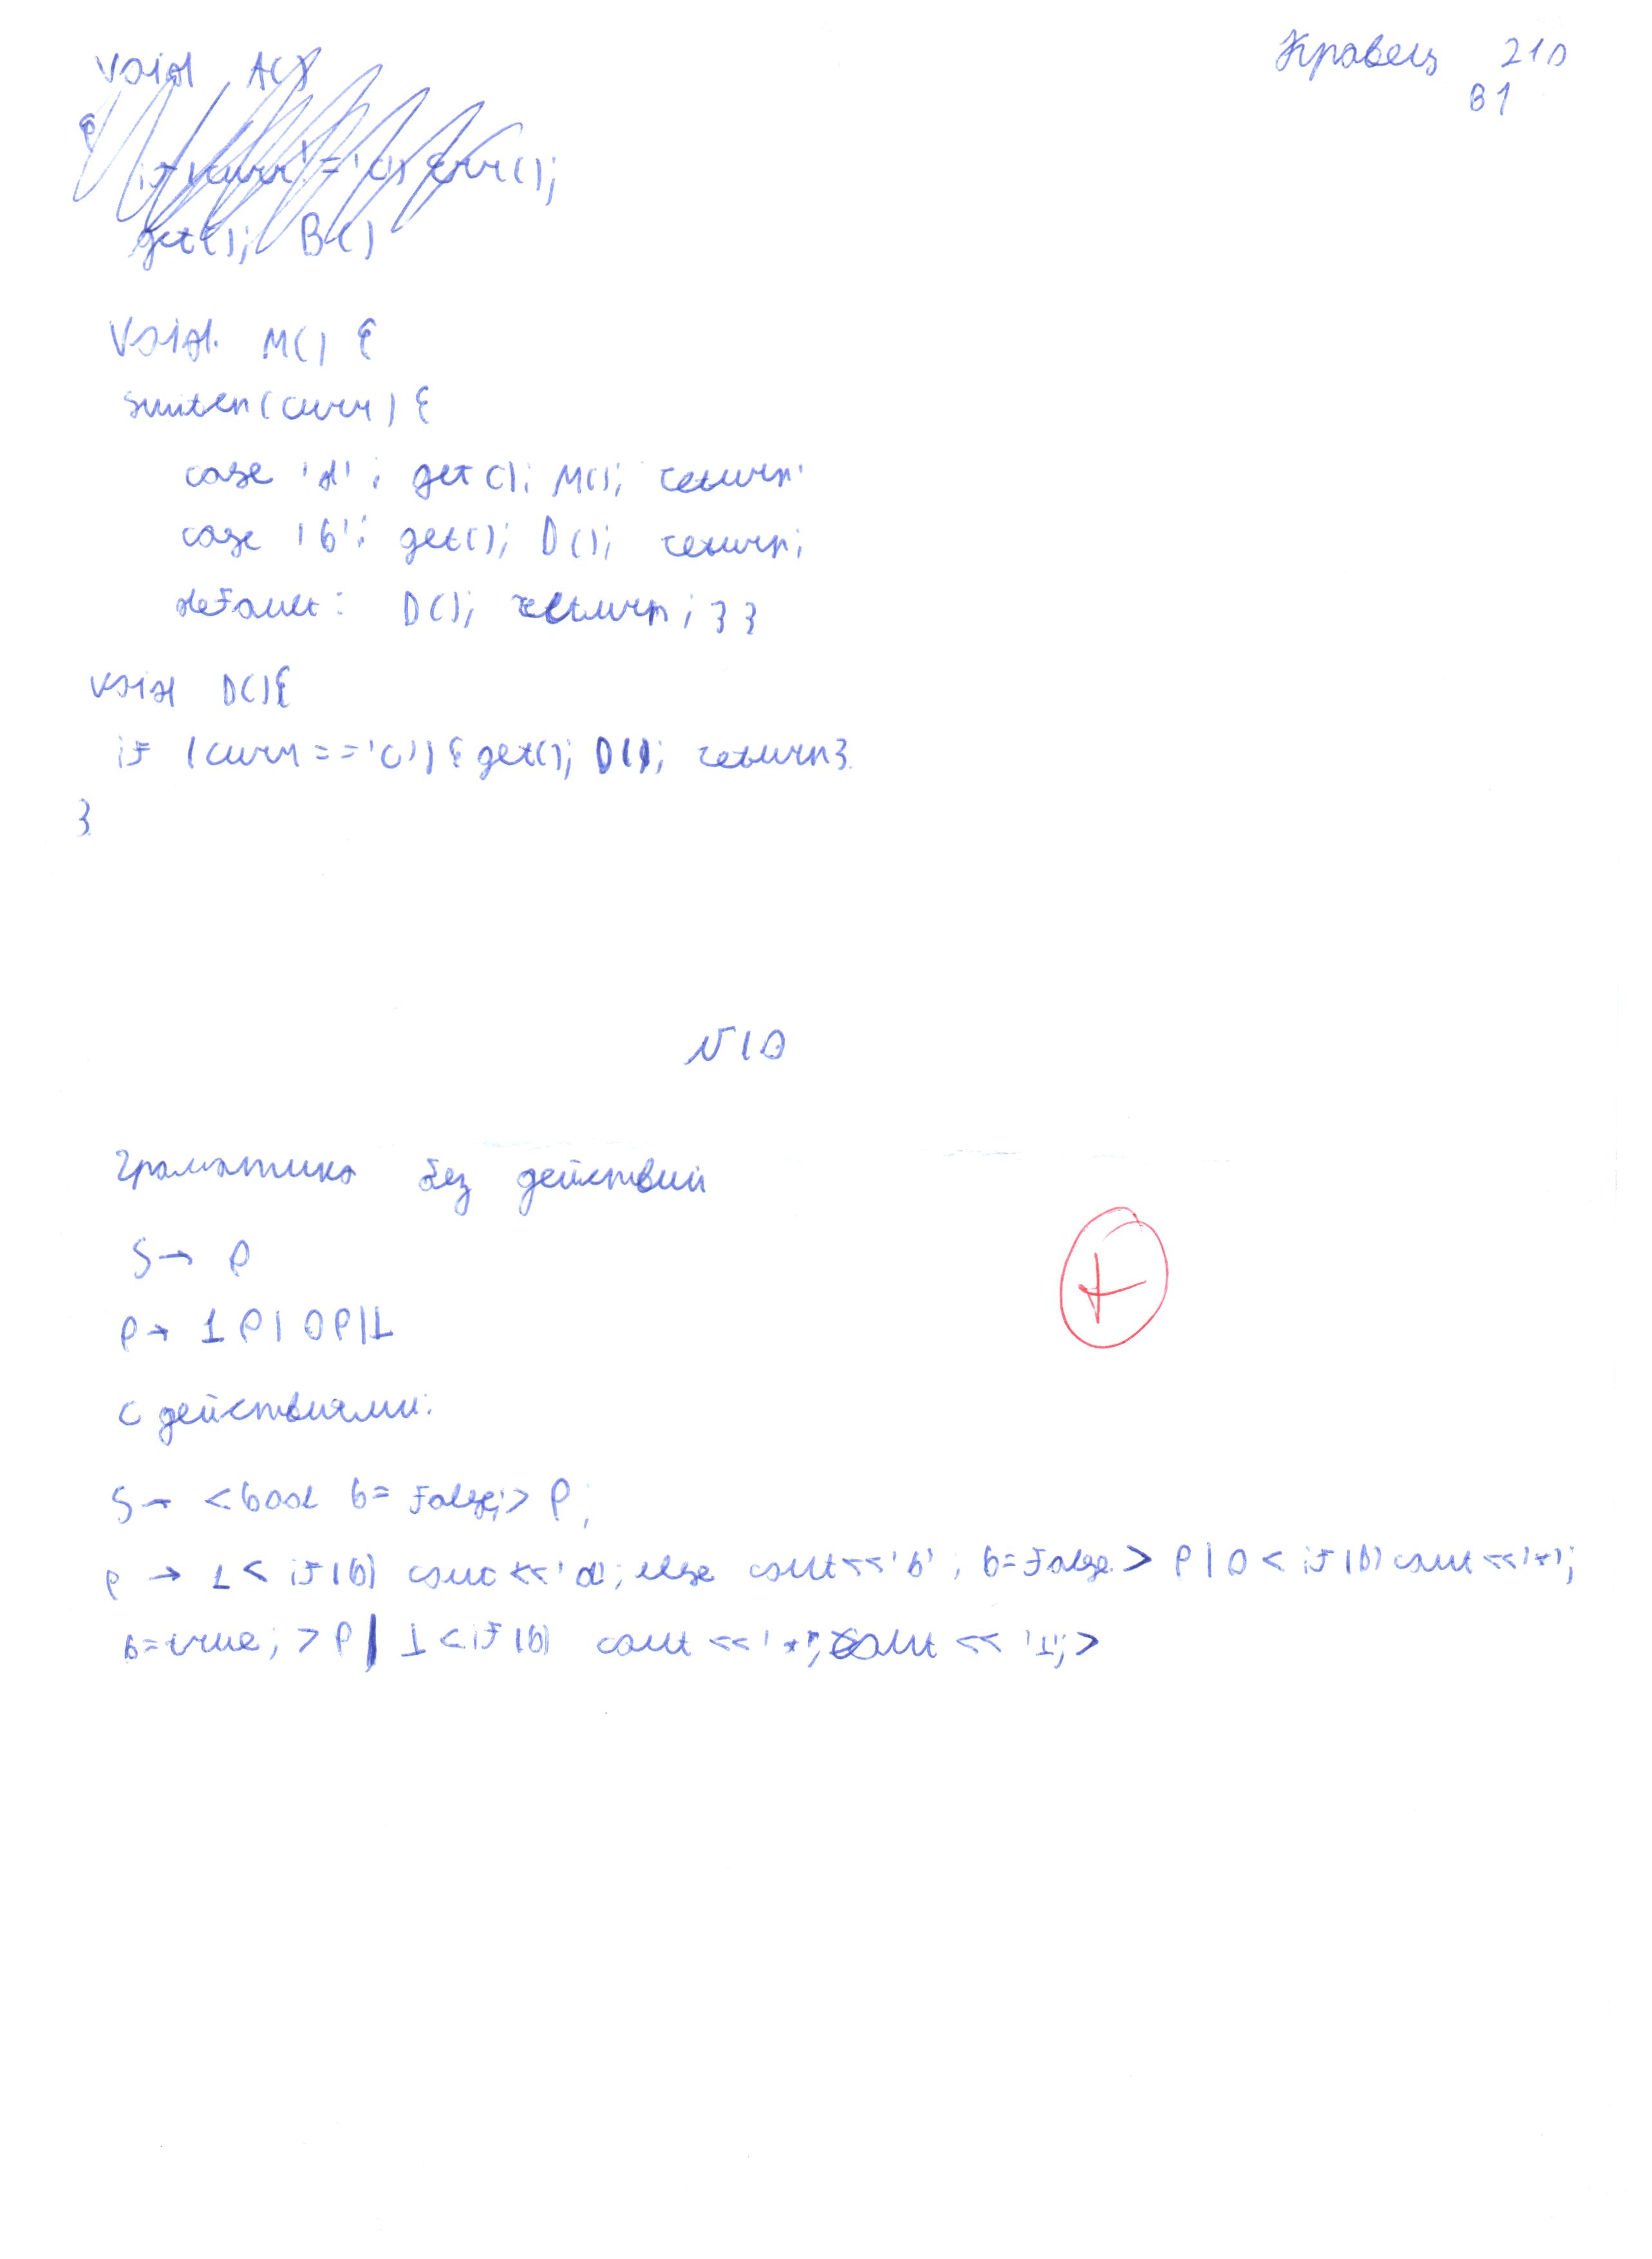 Кравец 210
В1
void A()
{
if (curr != 'c') err();
get(); B()
void M() {
switch(curr) {
case 'd': get(); M(); return;
case 'b': get(); D(); return;
default: D(); return; } }
void D(){
if (curr == 'c') { get(); D(); return }
}
N10
Граматика без действий
S → P
P → 1P | 0P | ⊥
с действиями:
S → <bool b = false;> P;
P → 1 < if (b) cout << 'a'; else cout << 'b'; b = false. > P | 0 < if (b) cout << '*';
b = true; > P | ⊥ < if (b) cout << '*'; cout << '⊥'; >
+